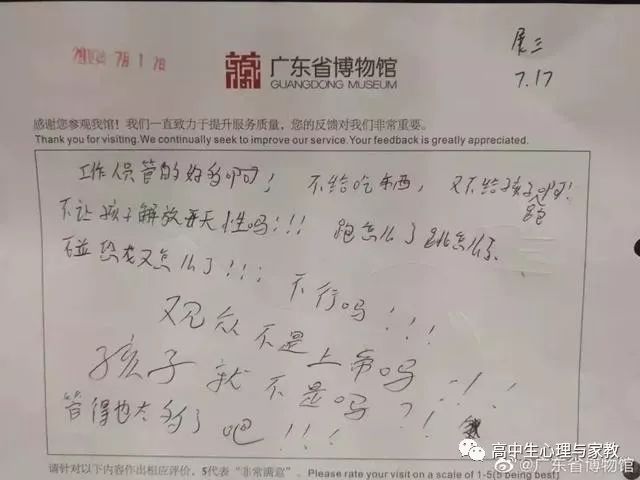 展三
7.17
广东省博物馆
GUANGDONG MUSEUM
感谢您参观我馆！我们一直致力于提升服务质量，您的反馈对我们非常重要。
Thank you for visiting.We continually seek to improve our service.Your feedback is greatly appreciated.
工作人员管的好多啊！ 不给吃东西， 又不给孩子跑啊！
不让孩子解放天性吗！！！ 跑怎么了 跳怎么了
碰恐龙又怎么了！！！ 不行吗！！！
观众不是上帝吗！！！
孩子就不是吗？！！
管得也太多了吧！！！
请针对以下内容作出相应评价，5代表“非常满意”。 Please rate your visit on a scale of 1-5(5 being best)
高中生心理与家教
@广东省博物馆